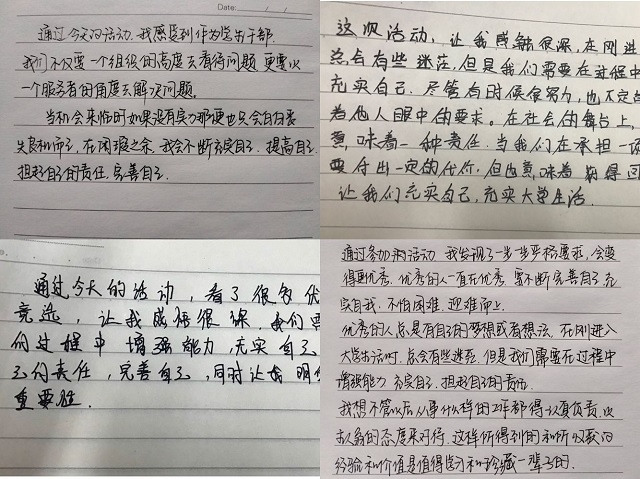 Date:
通过今天的活动,我感受到作为学生干部
我们不仅要一个组织的高度去看待问题,更要以
一个服务者的角度去解决问题。
当机会来临时如果没有实力那便也只会白白丧
失良机而已,在闲暇之余,我会不断充实自己,提高自己
担起自己的责任,完善自己.
这次活动,让我感触很深,在刚进
总会有些迷茫,但是我们需要在过程中
充实自己.尽管有时候很努力,也不一定
着他人眼中的要求。在社会的舞台上,
意味着一种责任.当我们在承担一项
要付出一定的代价,但也意味着获得回
让我们充实自己,充实大学生活.
通过今天的活动,看了很多优
竞选,让我感悟很深,我们要
的过程中增强能力,充实自己
己的责任,完善自己,同时让我明
重要性.
通过参加的活动,我发现了一步一步严格要求,会变
得更优秀.优秀的人一直在优秀,要不断完善自己,充
实自我,不怕困难,迎难而上.
优秀的人总是有自己的梦想或者想法,在刚进入
大学生活时,总会有些迷茫.但是我们需要在过程中
增强能力,充实自己,担起自己的责任.
我想不管以后从事什么样的工作都得认真负责,以
的态度来对待.这样所得到的和所收获的
经验和价值是值得学习和珍藏一辈子的.